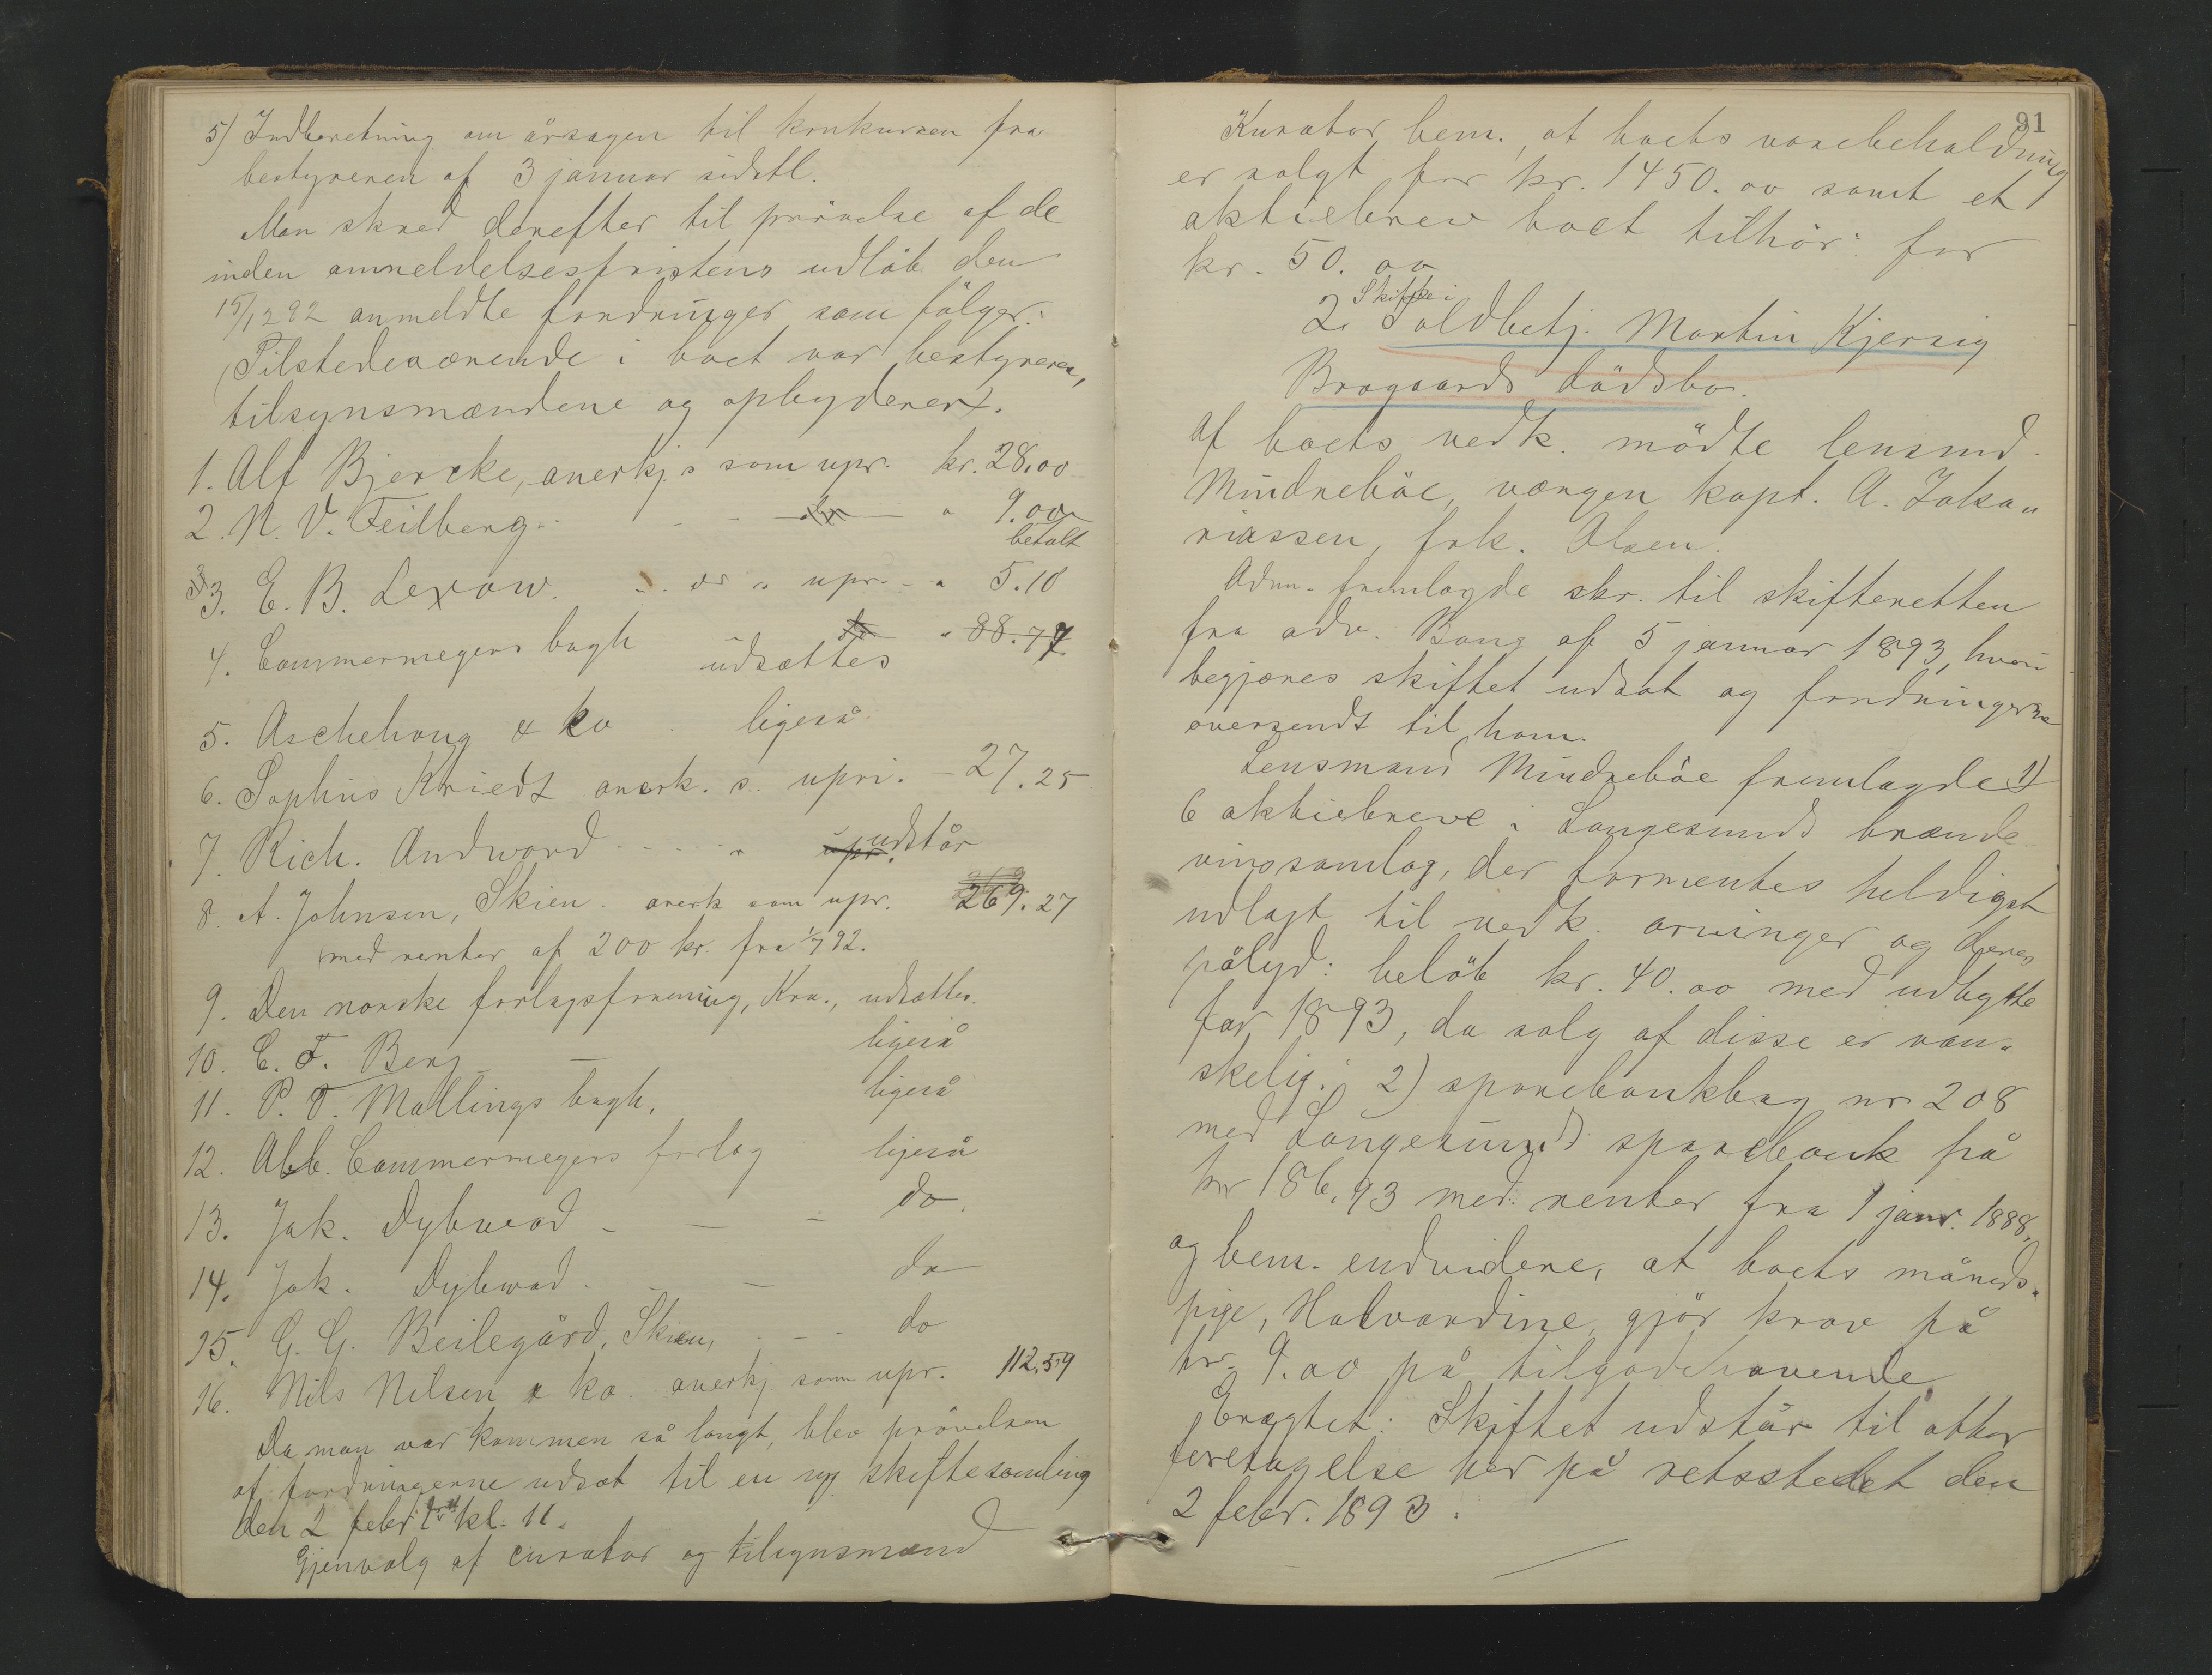 5) Indberetning om årsagen til konkursen fra
bestyreren af 3 januar sidstl.
Man skred derefter til prövelse af de
inden anmeldelsesfristens udlöb den
15/12 92 anmeldte fordringer som fölger:
Tilstedeværende i boet var bestyreren,
tilsynsmændene og opbyderen.
1. Alf Bjercke, anerkj. s som upr. kr. 28.00
2. N. V. Feilberg - - - do - " 9.00
betalt
3. E. B. Lexow. - " upr. - " 5.10
4. Cammermeyers bogh do " 88.77
udsættes
5. Aschehoug & ko ligeså
6. Sophus Kriedt anerk. s. upri. - 27.25
7. Rich. Andvord - - - - " upr. udstår
8. A. Johnsen, Skien - anerk som upr. 269.27
med renter af 200 kr. fra 1/7 92.
9. Den norske forlagsforening, Kra., udsættes.
10. C. F. Berg — ligeså
11. P. T. Mallings bogh. ligeså
12. Alb. Cammermeyers forlag ligeså
13. Jak. Dybwad - — - do.
14. Jak. Dybwad - — do
15. G. G. Beilegård, Skien, - - - do
16. Nils Nilsen & ko. anerkj som upr. 112.59
Da man var kommen så langt, blev prövelsen
af fordringerne udsat til en ny skiftesamling
den 2 febr kl. 11.
Gjenvalg af curator og tilsynsmænd
91
Kurator bem., at boets varebeholdning
er solgt for kr. 1450.00 samt et
aktiebrev boet tilhör: for
kr. 50.00
2. Skifte i Toldbetj. Martin Kjersig
Brogaards dödsbo.
Af boets vedk. mödte lensmd.
Mindreböe, værgen kapt. A. Zaka„
riassen, frk. Olsen.
Adm. fremlagde skr. til skifteretten
fra adv. Bang af 5 januar 1893, hvori
begjæres skiftet udsat og fordringerne
oversendt til ham.
Lensmand Mindreböe fremlagde 1)
6 aktiebreve i Langesunds brænde
vinssamlag, der formentes heldigst
udlagt til vedk. arvinger og deres
pålyd: belöb kr. 40.00 med udbytte
for 1893, da salg af disse er van„
skelig; 2) sparebankbog nr 208
med Langesunds sparebank på
kr 186,93 med renter fra 1 janr. 1888,
og bem. endvidere, at boets måneds„
pige, Halvardine, gjör krav på
kr. 9.00 på tilgodehavende.
Eragtet: Skiftet udstår til atter
foretagelse her på retsstedet den
2 febr. 1893.